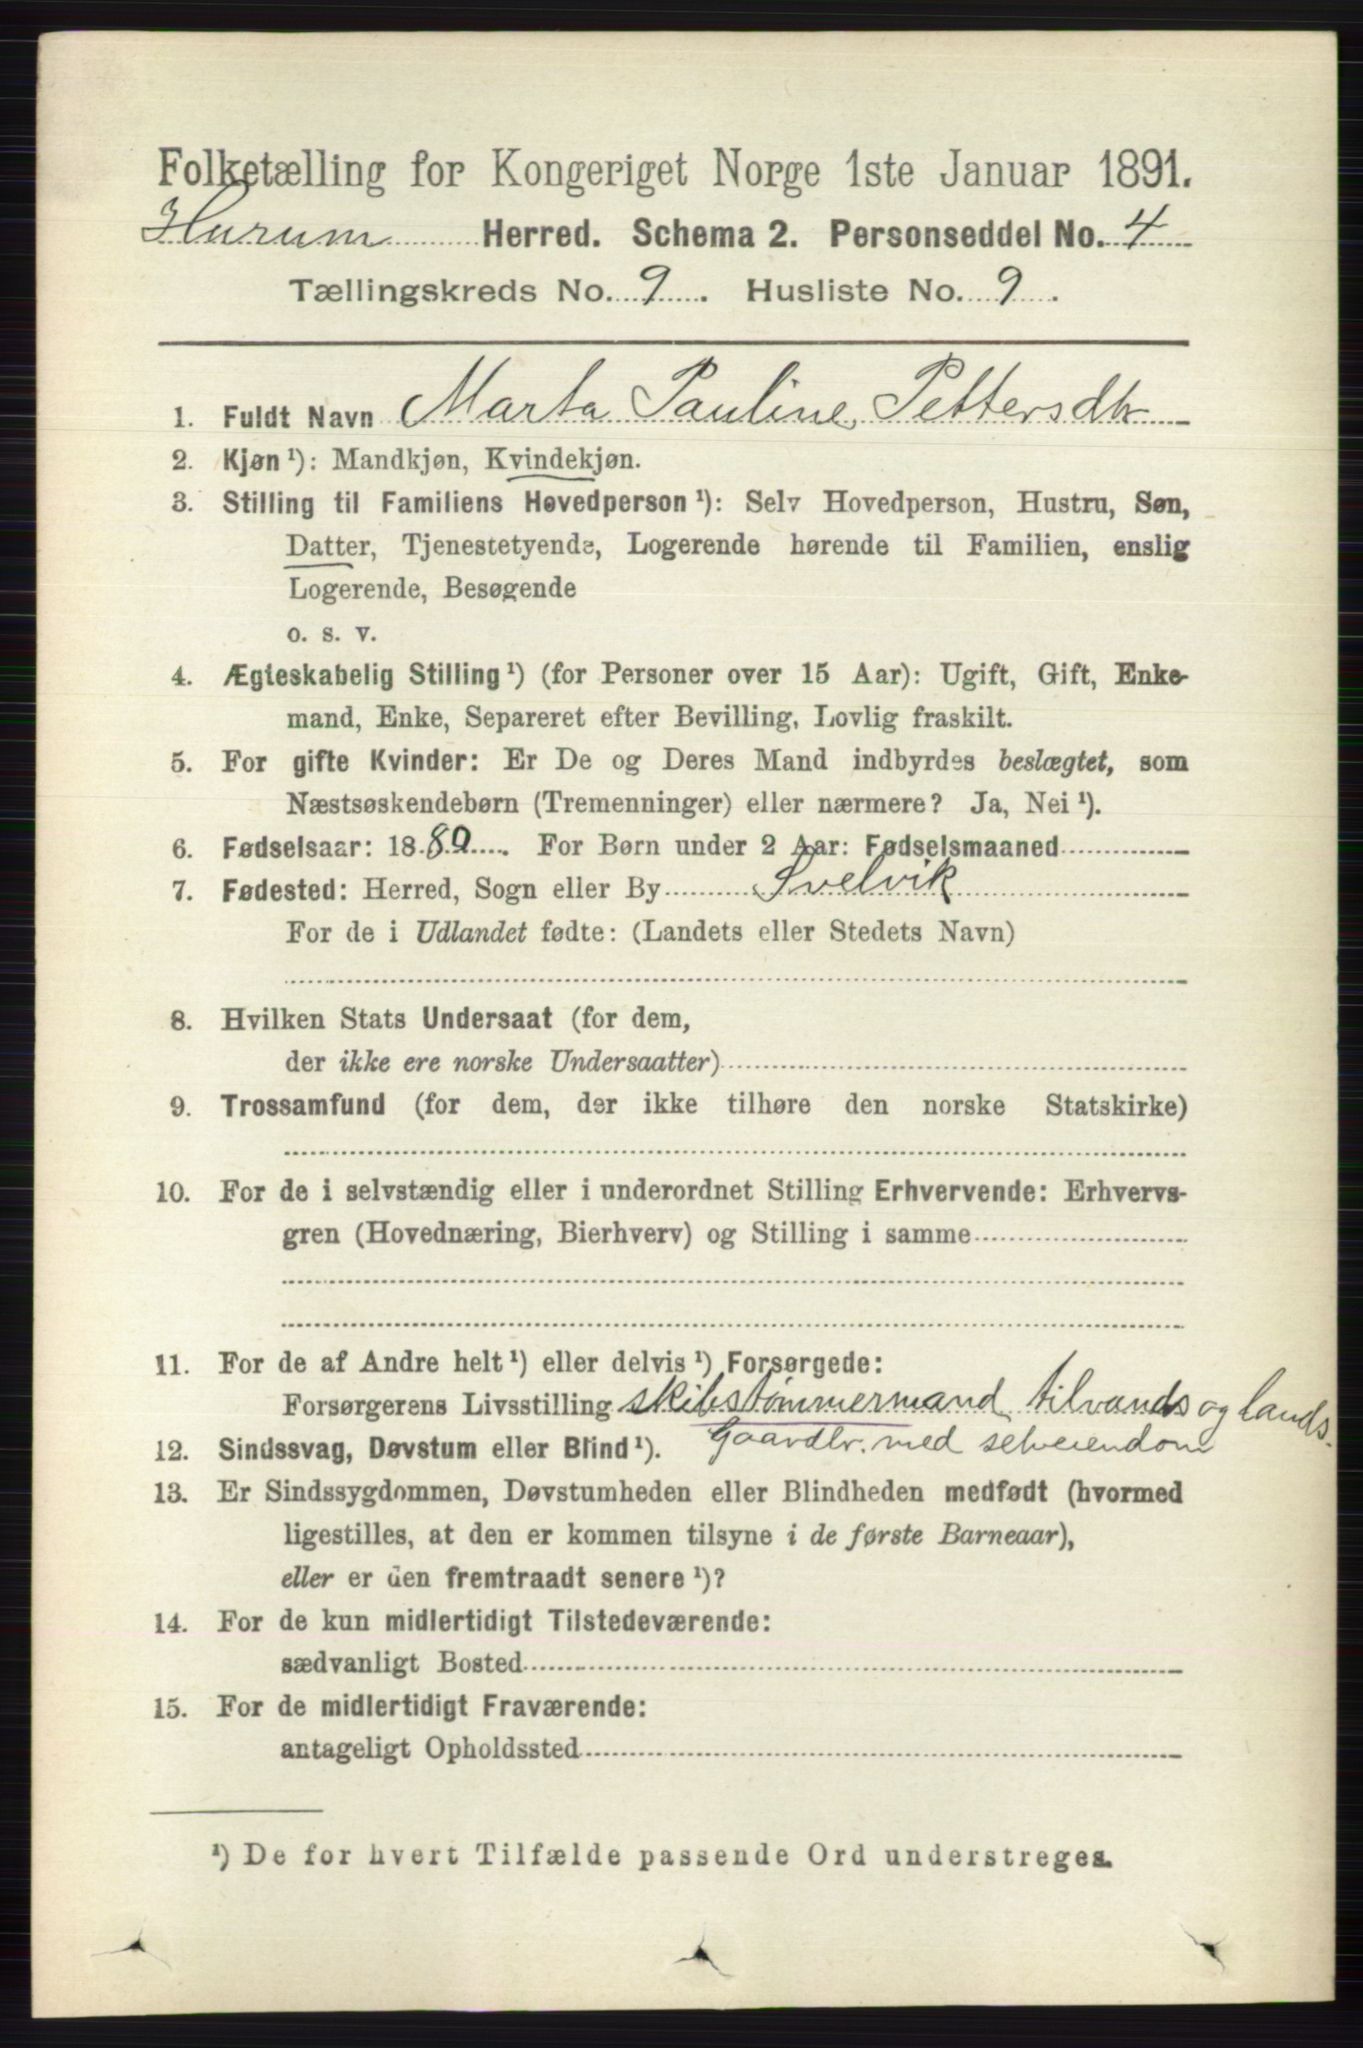 Folketælling for Kongeriget Norge 1ste Januar 1891.
Hurum Herred. Schema 2. Personseddel No. 4
Tællingskreds No. 9. Husliste No. 9.
1. Fuldt Navn Marta Pauline Pettersdtr
2. Kjøn ¹): Mandkjøn, Kvindekjøn.
3. Stilling til Familiens Hovedperson ¹): Selv Hovedperson, Hustru, Søn,
Datter, Tjenestetyende, Logerende hørende til Familien, enslig
Logerende, Besøgende
o. s. v.
4. Ægteskabelig Stilling ¹) (for Personer over 15 Aar): Ugift, Gift, Enke-
mand, Enke, Separeret efter Bevilling, Lovlig fraskilt.
5. For gifte Kvinder: Er De og Deres Mand indbyrdes beslægtet, som
Næstsøskendebørn (Tremenninger) eller nærmere? Ja, Nei ¹).
6. Fødselsaar: 1880. For Børn under 2 Aar: Fødselsmaaned
7. Fødested: Herred, Sogn eller By Svelvik
For de i Udlandet fødte: (Landets eller Stedets Navn)
8. Hvilken Stats Undersaat (for dem,
der ikke ere norske Undersaatter)
9. Trossamfund (for dem, der ikke tilhøre den norske Statskirke)
10. For de i selvstændig eller i underordnet Stilling Erhvervende: Erhvervs-
gren (Hovednæring, Bierhverv) og Stilling i samme
11. For de af Andre helt ¹) eller delvis ¹) Forsørgede:
Forsørgerens Livsstilling skibstømmermand, tilvands og lands.
Gaardbr. med selveiendom
12. Sindssvag, Døvstum eller Blind ¹).
13. Er Sindssygdommen, Døvstumheden eller Blindheden medfødt (hvormed
ligestilles, at den er kommen tilsyne i de første Barneaar),
eller er den fremtraadt senere ¹)?
14. For de kun midlertidigt Tilstedeværende:
sædvanligt Bosted
15. For de midlertidigt Fraværende:
antageligt Opholdssted
¹) De for hvert Tilfælde passende Ord understreges.